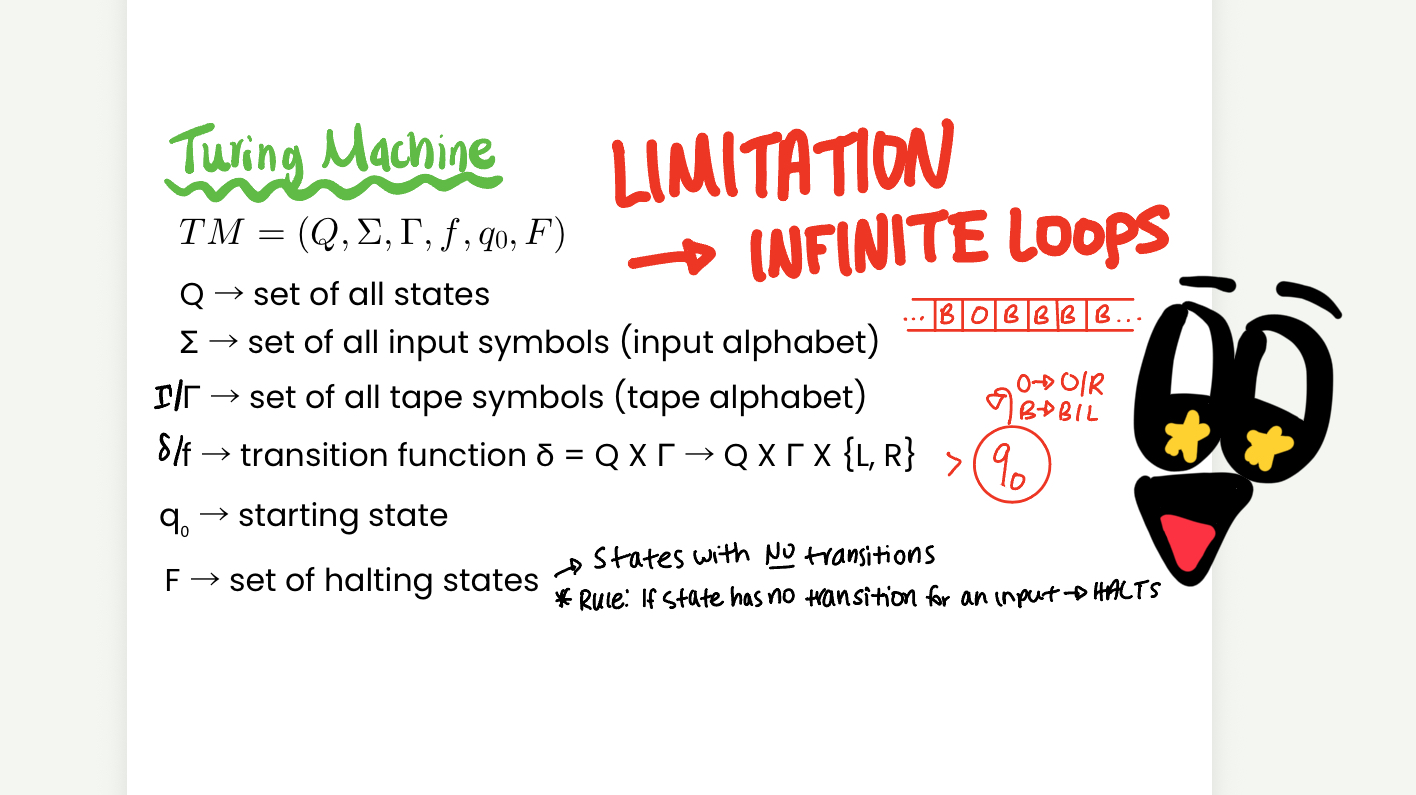 Turing Machine
TM = (Q, Σ, Γ, f, q₀, F)
Q → set of all states
Σ → set of all input symbols (input alphabet)
I/Γ → set of all tape symbols (tape alphabet)
δ/f → transition function δ = Q X Γ → Q X Γ X {L, R}
q₀ → starting state
F → set of halting states
→ States with NO transitions
* Rule: If state has no transition for an input → HALTS
LIMITATION
→ INFINITE LOOPS
... B O B B B B ...
O → O/R
B → B/L
> q₀